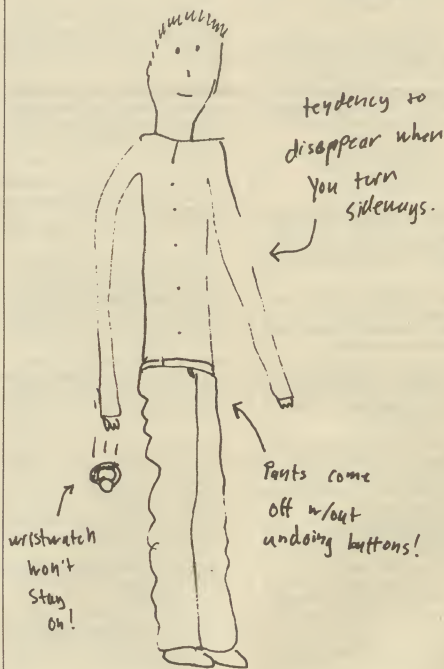 tendency to
disappear when
you turn
sideways.
Pants come
off w/out
undoing buttons!
wristwatch
won't
stay
on!